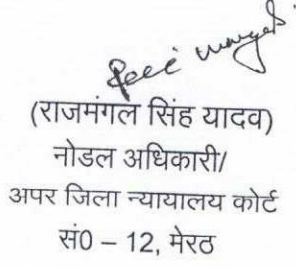 (राजमंगल सिंह यादव)
नोडल अधिकारी/
अपर जिला न्यायालय कोर्ट
सं0 – 12, मेरठ